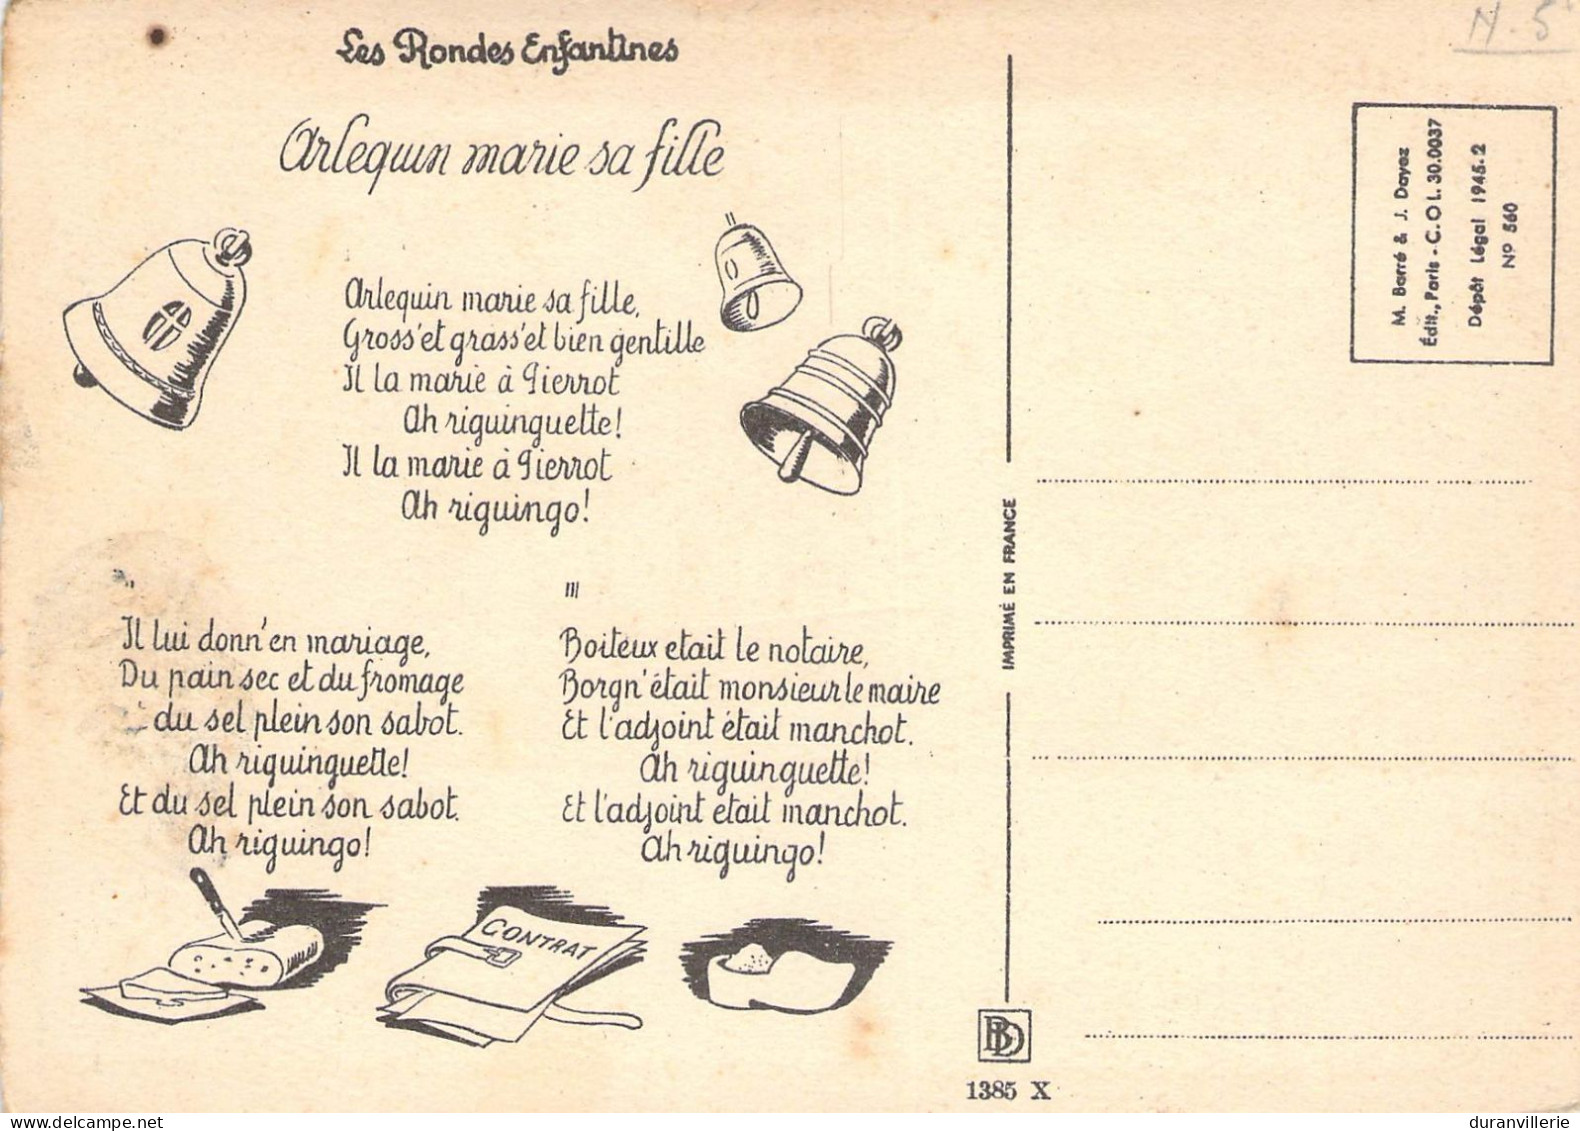 Les Rondes Enfantines
Arlequin marie sa fille
Arlequin marie sa fille,
Gross'et grass'et bien gentille
Il la marie à Pierrot
Ah riguinguette!
Il la marie à Pierrot
Ah riguingo!
Il lui donn'en mariage,
Du pain sec et du fromage
du sel plein son sabot.
Ah riguinguette!
Et du sel plein son sabot.
Ah riguingo!
III
Boiteux etait le notaire,
Borgn'était monsieur le maire
Et l'adjoint était manchot.
Ah riguinguette!
Et l'adjoint etait manchot.
Ah riguingo!
CONTRAT
IMPRIMÉ EN FRANCE
BD
1385 X
M. Barré & J. Dayez
Édit., Paris - C.O L. 30.0037
Dépôt Légal 1945-2
Nº 560
duranvillerie